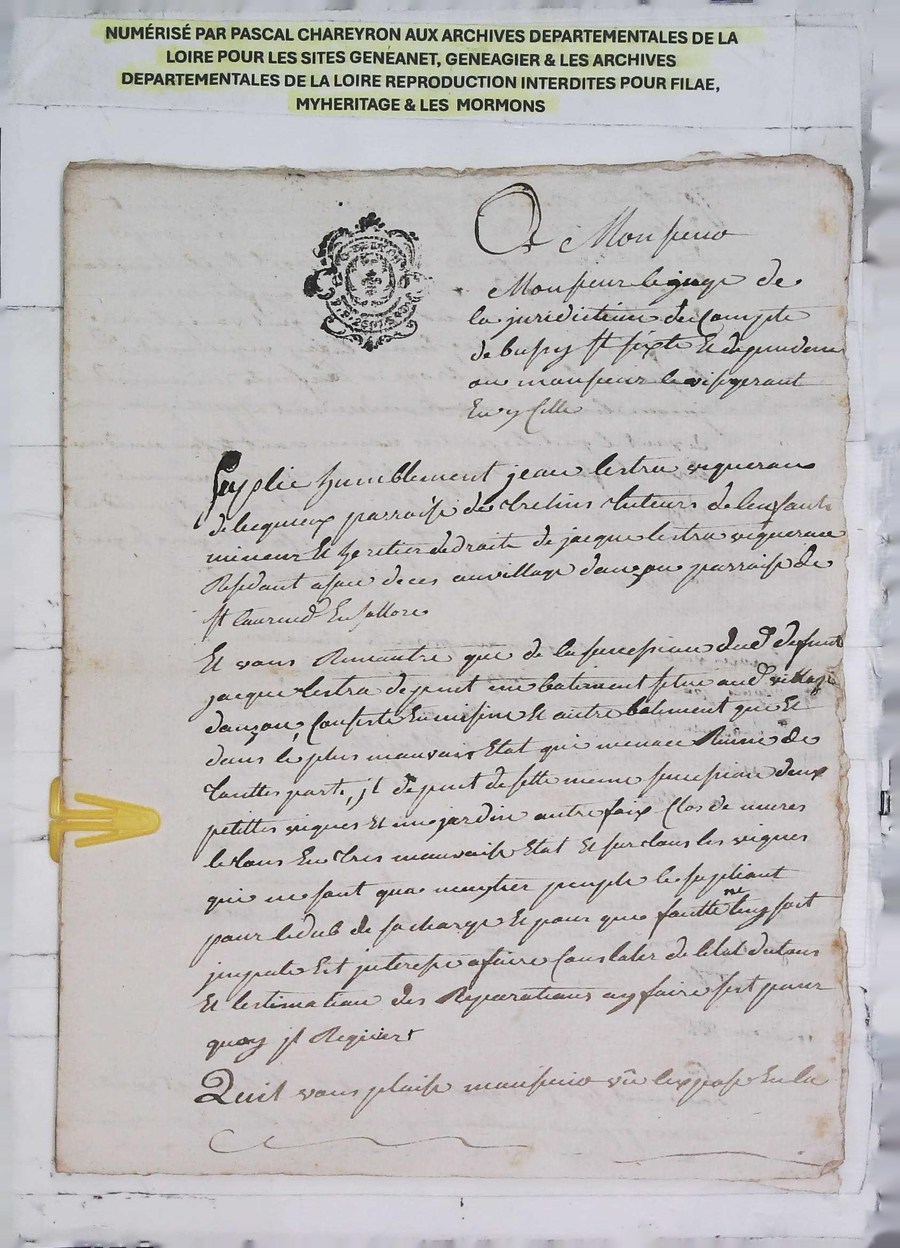 NUMÉRISÉ PAR PASCAL CHAREYRON AUX ARCHIVES DEPARTEMENTALES DE LA
LOIRE POUR LES SITES GENEANET, GENEAGIER & LES ARCHIVES
DEPARTEMENTALES DE LA LOIRE REPRODUCTION INTERDITES POUR FILAE,
MYHERITAGE & LES MORMONS
A Monsieur
Monsieur le juge de
la juridiction du Compte
de bussy st sixte Et dependence
ou monsieur le
En y Celle
Suplie humblement jean lestra vigneron
de parroisse de trelins tuteurs de lenfant
mineur Et heretier de droite de jacque lestra vigneron
Resident a son deces au village danzon parroisse de
st laurend En sollore
Et vous Remontre que de la sucession dud defunt
jacque lestra depent un batiment situe aud village
danzon, Consiste En cuisine Et autre batiment que Et
dans le plus mauvais Etat qui menace Ruine de
touttes parts, jl depent de sette meme sucession deux
petittes vignes Et un jardin autre faix Clos de mures
le tous En tres mauvaise Etat Et surtous les vignes
qui ne sont qua le supliant
pour le de sa charge Et pour que fautte ne luy soit
jnputé Est jnteresse a faire Constater de letat du tous
Et lestimation des Reparations a y faire sest pour
quoy jl Requiert
Quil vous plaise monsieur vu lexpose En la